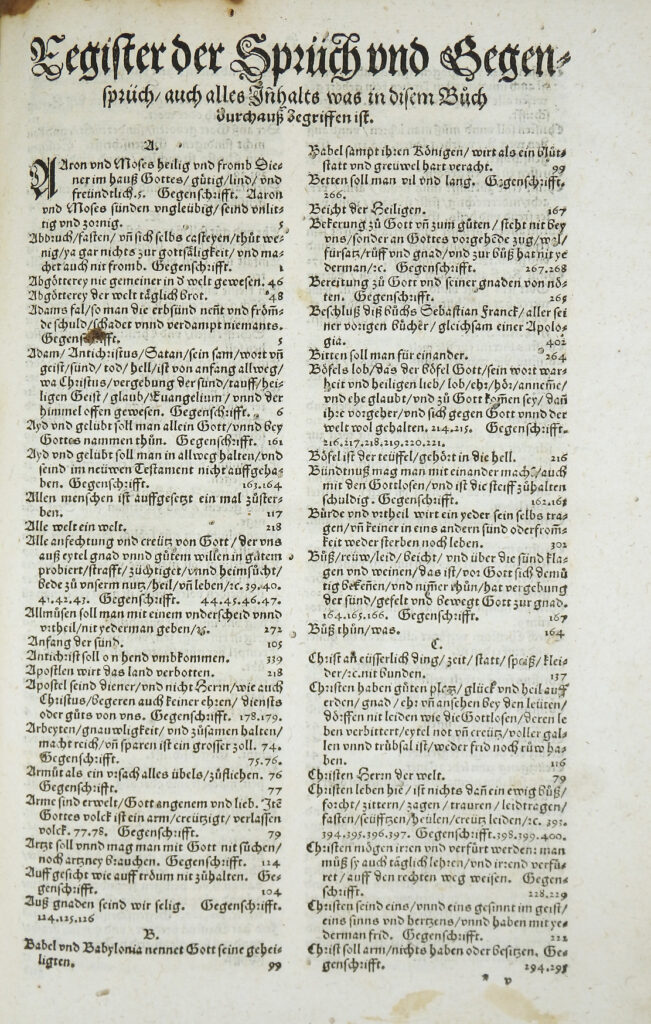 Register der Sprüch vnd Gegen-
sprüch/ auch alles Inhalts was in disem Bůch
durchauß begriffen ist.
A.
AAron vnd Moses heilig vnd fromb Die-
ner im hauß Gottes/ gütig/lind/ vnd
freündtlich.5. Gegenschrifft. Aaron
vnd Moses sünden vngleübig/seind vnlit-
tig vnd zornig. 5
Abbruch/fasten/ vñ sich selbs casteyen/thůt we-
nig/ya gar nichts zur gottsäligkeit/ vnd ma-
chet auch nit fromb. Gegenschrifft. 1
Abgötterey nie gemeiner in d welt gewesen. 46
Abgötterey der welt täglich brot. 48
Adams fal/so man die erbsünd nent vnd frömb-
de schuld/schadet vnnd verdampt niemants.
Gegenschrifft. 5
Adam/ Antichristus/Satan/sein sam/wort vñ
geist/sünd/tod/hell/ist von anfang allweg/
wa Christus/vergebung der sünd/tauff/hei-
ligen Geist/ glaub/Euangelium/ vnnd der
himmel offen gewesen. Gegenschrifft. 6
Ayd vnd gelübt soll man allein Gott/vnnd bey
Gottes nammen thůn. Gegenschrifft. 161
Ayd vnd gelübt soll man in allweg halten/vnd
seind im neüwen Testament nicht auffgeha-
ben. Gegenschrifft. 163.164
Allen menschen ist auffgesetzt ein mal zůster-
ben. 117
Alle welt ein welt. 218
Alle anfechtung vnd creütz von Gott/ der vns
auß eytel gnad vnnd gůtem willen in gůtem
probiert/strafft/züchtiget/vnnd heimsůcht/
bede zů vnserm nutz/heil/vñ leben/ꝛc.39.40.
41.42.43. Gegenschrifft. 44.45.46.47.
Allmůsen soll man mit einem vnderscheid vnnd
vrtheil/nit yederman geben/ꝛc. 272
Anfang der sünd. 105
Antichrist soll on hend vmbkommen. 339
Apostlen wirt das land verbotten. 218
Apostel seind diener/vnd nicht Herrn/wie auch
Christus/begeren auch keiner ehren/ diensts
oder gůts von vns. Gegenschrifft. 178.179.
Arbeyten/gnauwligkeit/ vnd zůsamen halten/
macht reich/vñ sparen ist ein grosser zoll. 74.
Gegenschrifft. 75.76.
Armůt als ein vrsach alles übels/zůfliehen. 76
Gegenschrifft. 77
Arme sind erwelt/Gott angenem vnd lieb. Itē
Gottes volck ist ein arm/creützigt/verlassen
volck. 77.78. Gegenschrifft. 79
Artzt soll vnnd mag man mit Gott nit sůchen/
noch artzney brauchen. Gegenschrifft. 124
Auff gesicht wie auff tröum nit zůhalten. Ge-
genschrifft. 104
Auß gnaden seind wir selig. Gegenschrifft.
124.125.126
B.
Babel vnd Babylonia nennet Gott seine gehei-
ligten. 99
Babel sampt ihren Königen/ wirt als ein blůt-
statt vnd greuwel hart veracht. 99
Betten soll man vil vnd lang. Gegenschrifft.
266.
Beicht der Heiligen. 167
Bekerung zů Gott vñ zum gůten/ steht nit bey
vns/sonder an Gottes vorgehēde zug/wel/
fürsatz/růff vnd gnad/vnd zur bůß hat nit ye
derman/ꝛc. Gegenschrifft. 267.268
Bereitung zů Gott vnd seiner gnaden von nö-
ten. Gegenschrifft. 265
Beschluß diß bůchs Sebastian Franck/ aller sei
ner vorigen bůcher/ gleichsam einer Apolo-
gia. 402
Bitten soll man für einander. 264
Böfels lob/das der böfel Gott/sein wort war-
heit vnd heiligen lieb/ lob/ehr/hör/anneme/
vnd ehe glaubt/vnd zů Gott kommen sey/ dañ
ihre vorgeher/vnd sich gegen Gott vnnd der
welt wol gehalten. 214.215. Gegenschrifft.
216.217.218.219.220.221.
Böfel ist der teüffel/gehört in die hell. 216
Bündtnuß mag man mit einander mach/auch
mit den Gottlosen/ vnd ist die steiff zůhalten
schuldig. Gegenschrifft. 162.163
Bürde vnd vrtheil wirt ein yeder sein selbs tra-
gen/vñ keiner in eins andern sünd oder from-
keit weder sterben noch leben. 302
Bůß/reüw/leid/beicht/ vnd über die sünd kla-
gen vnd weinen/das ist/vor Gott sich demů
tig bekeñen/vnd nim̃er thůn/hat vergebung
der sünd/gefelt vnd bewegt Gott zur gnad.
164.165.166. Gegenschrifft. 167
Bůß thůn/was. 164
C.
Christ an eüsserlich ding/zeit/statt/speiß/klei-
der/ꝛc.nit bunden. 137
Christen haben gůten pletz/ glück vnd heil auff
erden/gnad/ehr vñ ansehen bey den leüten/
dörffen nit leiden wie die Gottlosen/deren le
ben verbittert/eytel not vñ creütz/voller gal-
len vnnd trübsal ist/weder frid noch růw ha-
ben. 116
Christen Herrn der welt. 79
Christen leben hie/ ist nichts dañ ein ewig bůß/
forcht/zittern/zagen/ trauren/leidtragen/
fasten/seüfftzen/heülen/creütz leiden/ꝛc. 393.
394.395.396.397. Gegenschrifft.398.399.400.
Christen mögen irren vnd verfürt werden: man
můß sy auch täglich lehren/ vnd irrend verfü-
ret/ auff den rechten weg weisen. Gegen-
schrifft. 228.229
Christen seind eins/vnnd eins gesinnt im geist/
eins sinns vnd hertzens/vnnd haben mit ye-
derman frid. Gegenschrifft. 222
Christ soll arm/nichts haben oder besitzen. Ge-
genschrifft. 294.295
* v